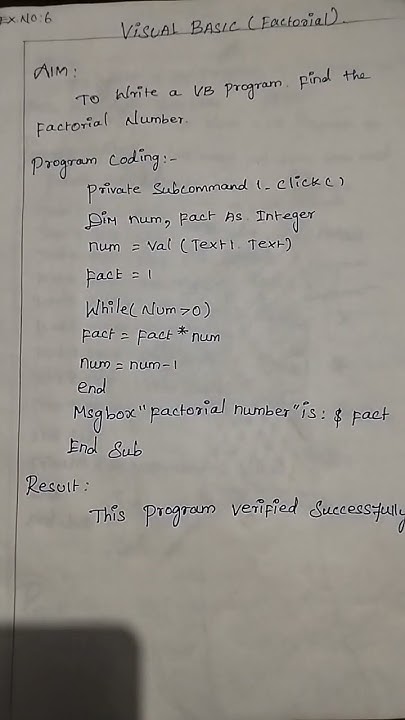 Ex.No:6
VISUAL BASIC (Factorial).
AIM:
To Write a VB program. Find the
Factorial Number.
Program Coding:-
Private Subcommand 1- Click( )
Dim num, Fact As Integer
num = Val (Text1. Text)
Fact = 1
While( Num>0)
Fact = Fact * num
num = num-1
end
Msgbox "Factorial number" is: $ Fact
End Sub
Result:
This Program verified Successfully